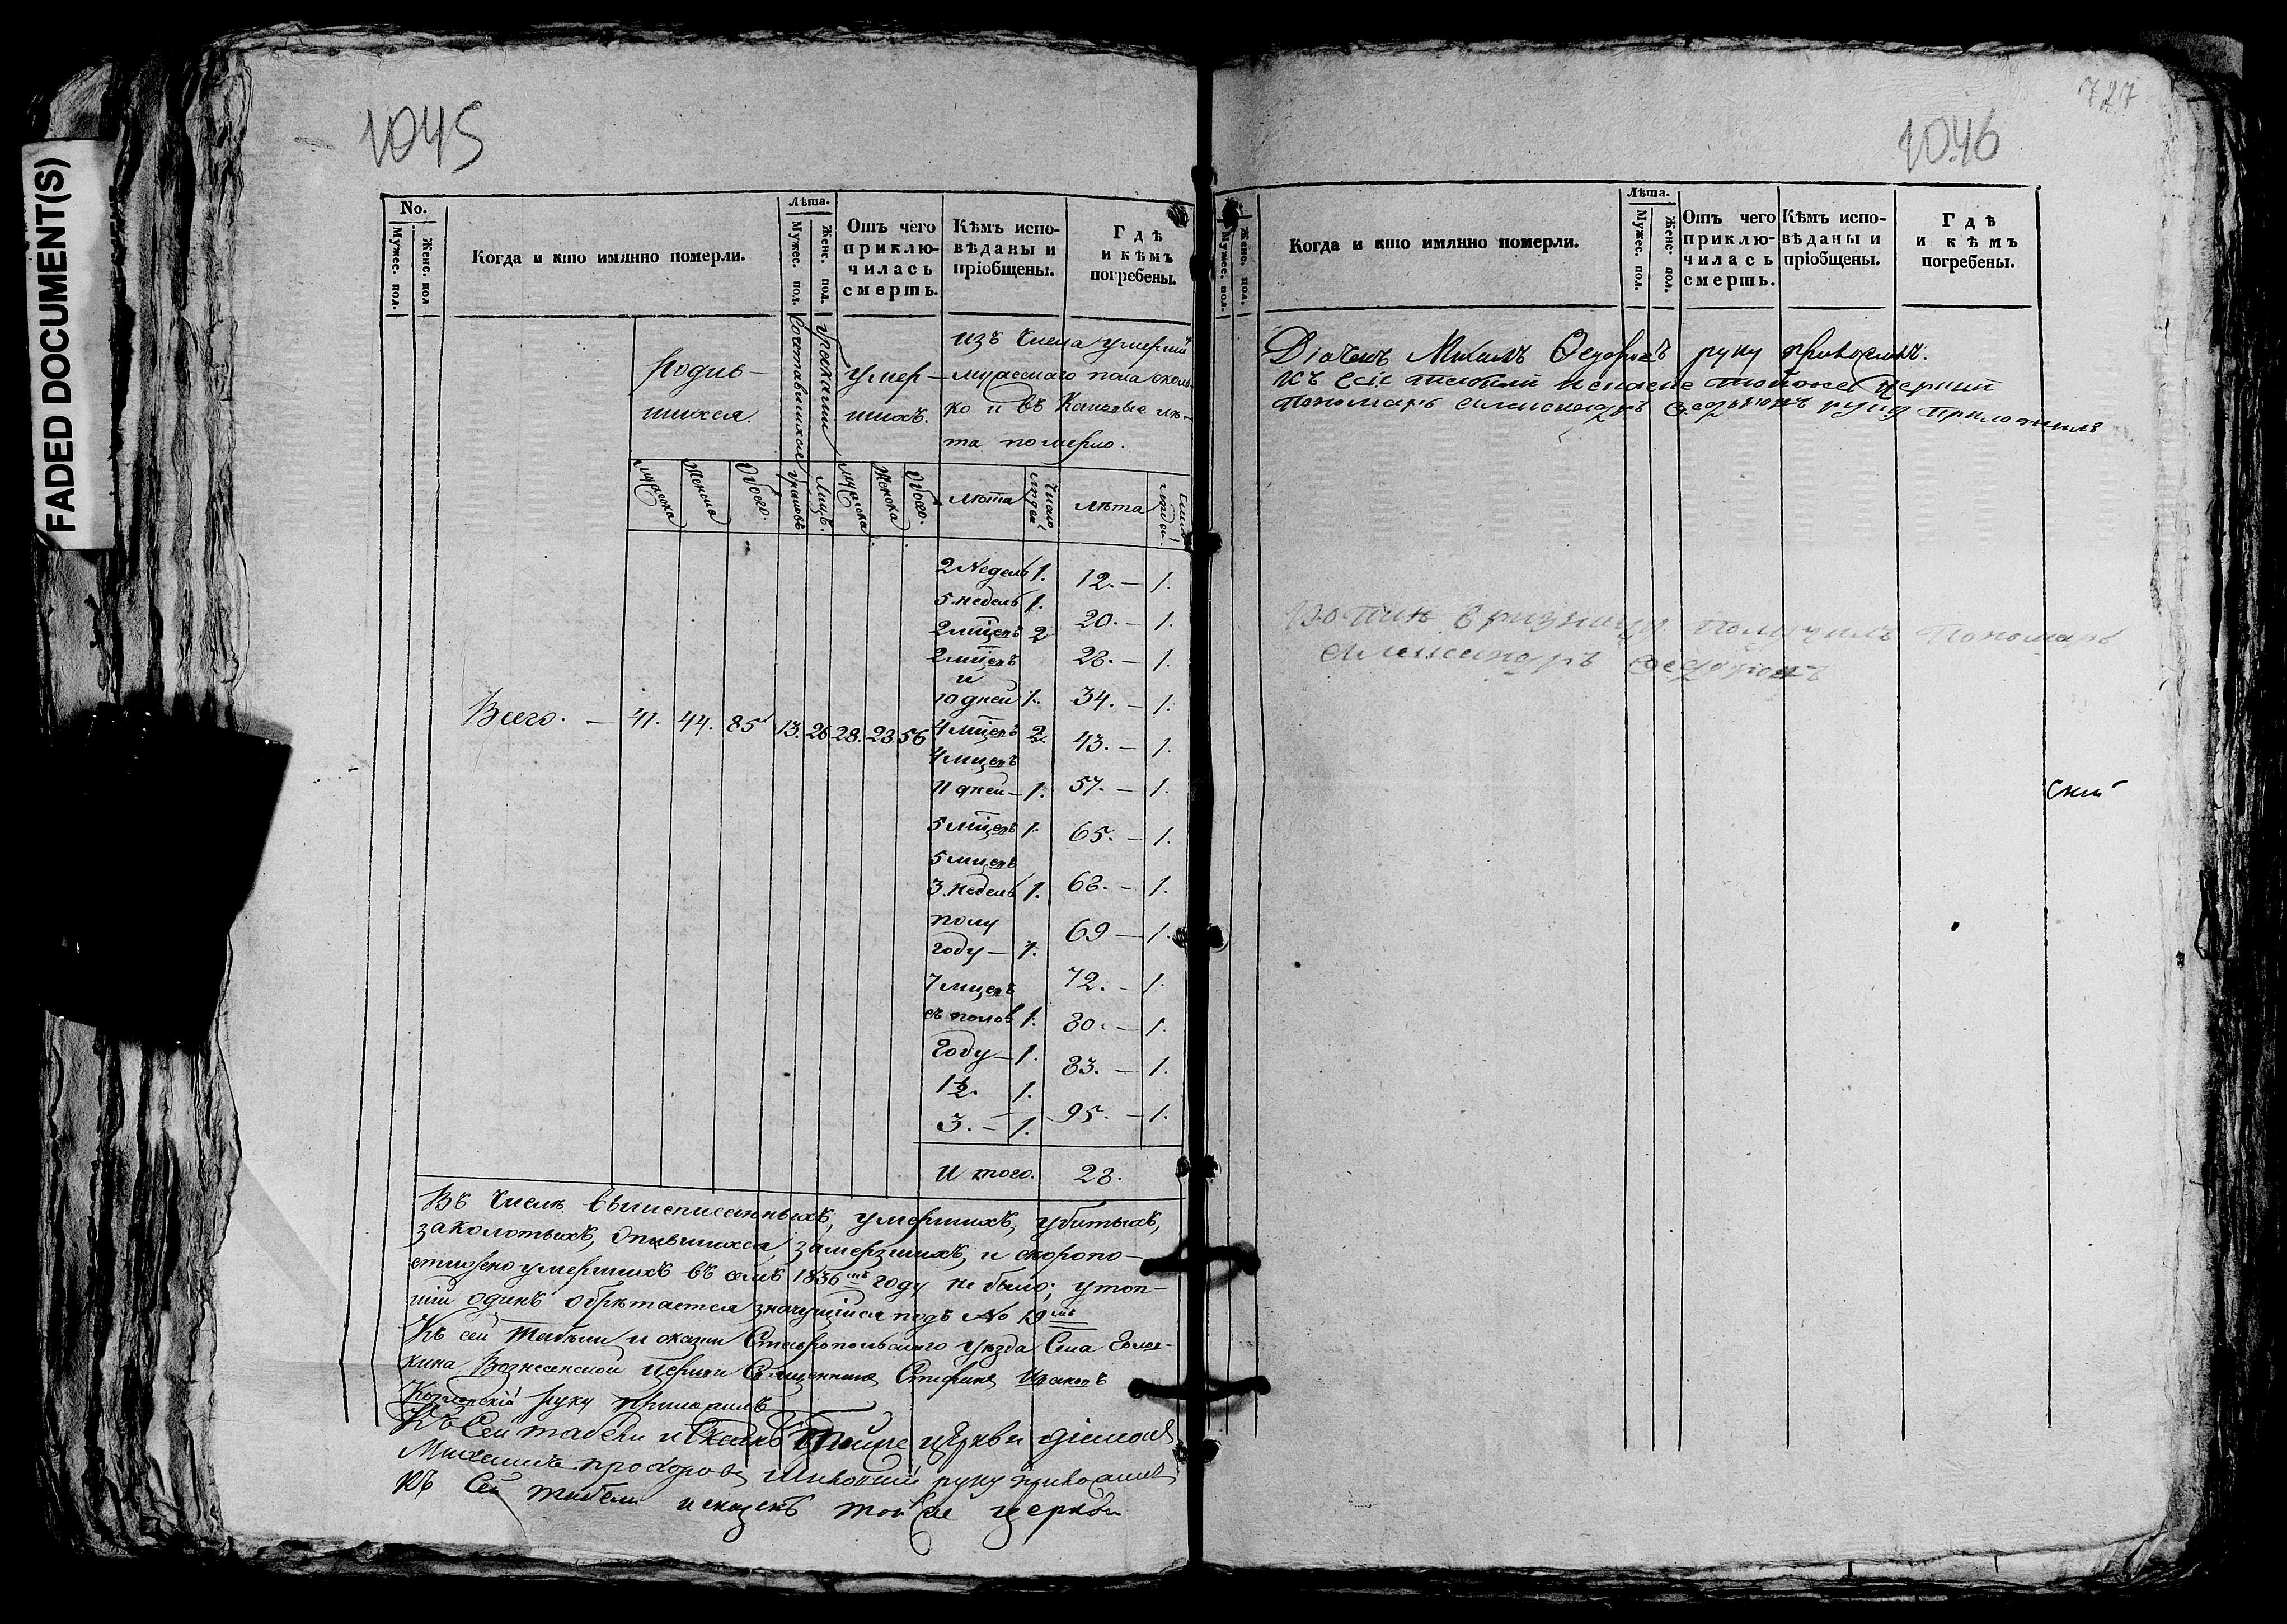 FADED DOCUMENT(S)
1045
No.
Мужес. пол.
Женс. пол
Когда и кто имянно померли.
Лѣта.
Мужес. пол.
Женс. пол.
Отъ чего приклю-чилась смерть.
Кѣмъ испо-вѣданы и пріобщены.
Гдѣ и кѣмъ погребены.
родив-
шихся.
умер-
шихъ.
изъ числа умерши
мужескаго пола сколь
ко и въ каковые лѣ-
та померло.
мужеска
женска
Обоего.
браковъ
лицъ.
мужеска
женска
Обоего.
лѣта
число людей
лѣта
людей.
2 недель 1. 12. — 1.
5. недель 1. 20. — 1.
2 мцевъ 2 28. — 1.
2 мцевъ
и
10 дней 1. 34. — 1.
Всего. — 41. 44. 85 13. 26 28. 28. 56
4 мцевъ 2. 43. — 1.
4 мцевъ
11 дней — 1. 57. — 1.
5 мцевъ 1. 65. — 1.
5 мцевъ
3. недель 1. 68. — 1.
полу
году — 1. 69 — 1.
7 мцевъ 72. — 1.
съ полов 1. 80. — 1.
Году — 1. 83. — 1.
1½. 1.
3. — 1. 95. — 1.
Итого. 28.
Въ числѣ вышеписанныхъ, умершихъ, убитыхъ,
заколотыхъ, опившихся, замерзшихъ, и скоропо-
стижно умершихъ въ семъ 1836мъ году не было; утоп-
шій одинъ обрѣтается значущійся подъ No 19мъ
Къ сей табели и сказки Ставропольскаго уѣзда Села
кина Вознесенской церкви Священникъ Стефанъ
руку приложилъ
Къ Сей табели и Сказкѣ тойже церкви діаконъ
Михаилъ руку приложилъ
Къ Сей табели и сказкѣ тойже церкви
727
1046
Мужес. пол.
Женс. пол.
Когда и кто имянно померли.
Лѣта.
Мужес. пол.
Женс. пол.
Отъ чего приклю-чилась смерть.
Кѣмъ испо-вѣданы и пріобщены.
Гдѣ и кѣмъ погребены.
Дьячекъ Михаилъ Ѳедоровъ руку приложилъ.
Къ сей табели и сказке тойже церкви
пономарь Александръ руку приложилъ
въ ризницу получилъ пономарь
Александръ